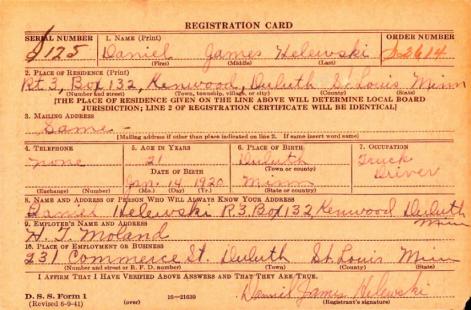 REGISTRATION CARD
SERIAL NUMBER 1. NAME (Print) ORDER NUMBER
S125 Daniel James Helewski S2614
(First) (Middle) (Last)
2. PLACE OF RESIDENCE (Print)
Rt. 3, Box 132, Kenwood, Duluth St. Louis Minn
(Number and street) (Town, township, village, or city) (County) (State)
[THE PLACE OF RESIDENCE GIVEN ON THE LINE ABOVE WILL DETERMINE LOCAL BOARD
JURISDICTION; LINE 2 OF REGISTRATION CERTIFICATE WILL BE IDENTICAL]
3. MAILING ADDRESS
Same
[Mailing address if other than place indicated on line 2. If same insert word same]
4. TELEPHONE 5. AGE IN YEARS 6. PLACE OF BIRTH 7. OCCUPATION
None 21 Duluth Truck
DATE OF BIRTH (Town or county) Driver
Jan. 14 1920 Minn
(Exchange) (Number) (Mo.) (Day) (Yr.) (State or country)
8. NAME AND ADDRESS OF PERSON WHO WILL ALWAYS KNOW YOUR ADDRESS
Helewski R3 Box 132 Kenwood Duluth
Minn
9. EMPLOYER'S NAME AND ADDRESS
H. T. Moland
10. PLACE OF EMPLOYMENT OR BUSINESS
231 Commerce St. Duluth St. Louis Minn
(Number and street or R. F. D. number) (Town) (County) (State)
I AFFIRM THAT I HAVE VERIFIED ABOVE ANSWERS AND THAT THEY ARE TRUE.
D. S. S. Form 1
(Revised 6-9-41) (over) 16—21630 Daniel James Helewski
(Registrant's signature)